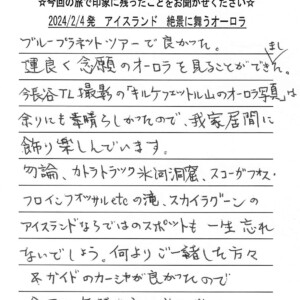 ☆今回の旅で印象に残ったことをお聞かせください☆
2024/2/4発 アイスランド 絶景に舞うオーロラ
ブループラネットツアーで良かった。
運良く念願のオーロラを見ることができました。
今長谷TL撮影の「キルキュフェットル山のオーロラ写真」は
余りにも素晴らしかったので、我家居間に
飾り楽しんでいます。
勿論、カトラトラック氷河洞窟、スコーガフォス・
フロインフォッサルetcの滝、スカイラグーンの
アイスランドならではのスポットも一生忘れ
ないでしょう。何よりご一緒した方々
ガイドのカーシャが良かったので